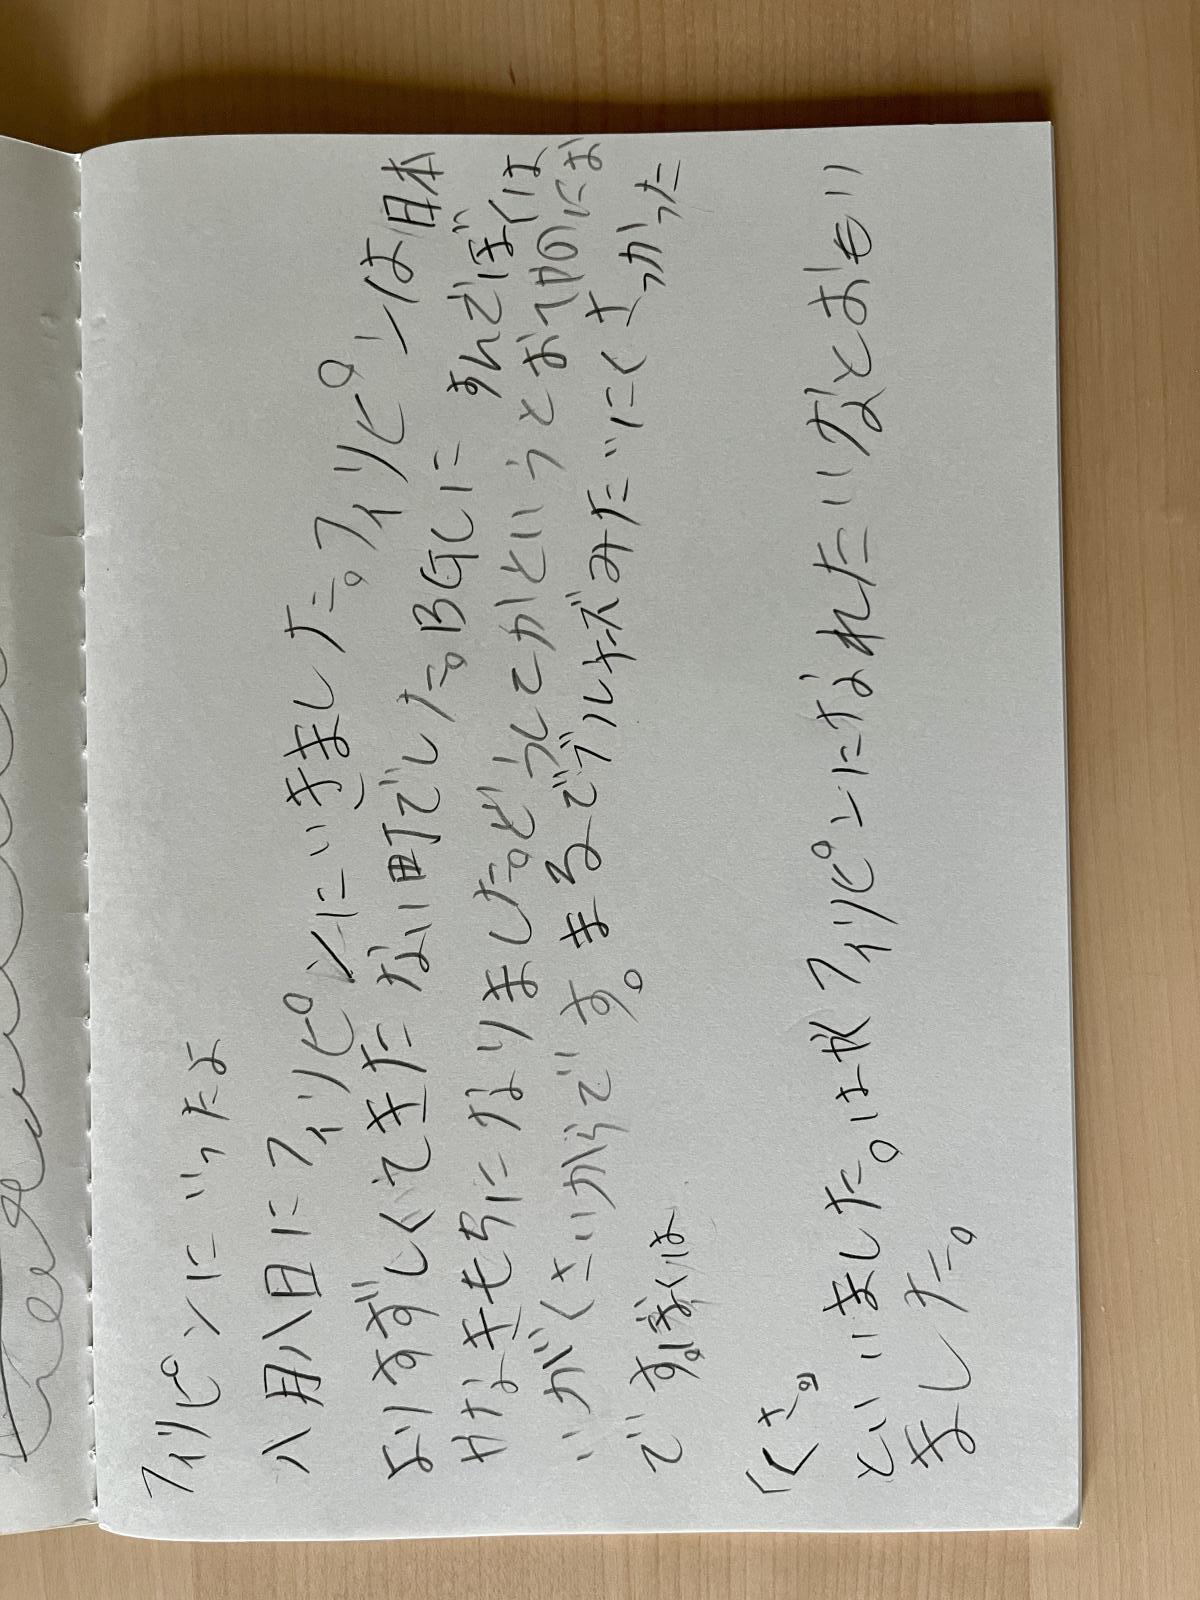 フィリピンにいったよ
八月八日にフィリピンにいきました。フィリピンは日本
よりすずしくてきたない町でした。BGCにすんでぼくは
やなきもちになりました。どうしてかというとおゆのにお
いがくさいからです。まるでブルーチーズみたいにくさかった
です。ぼくは
「くさ。」
といいました。はやくフィリピンになれたいなとおもい
ました。